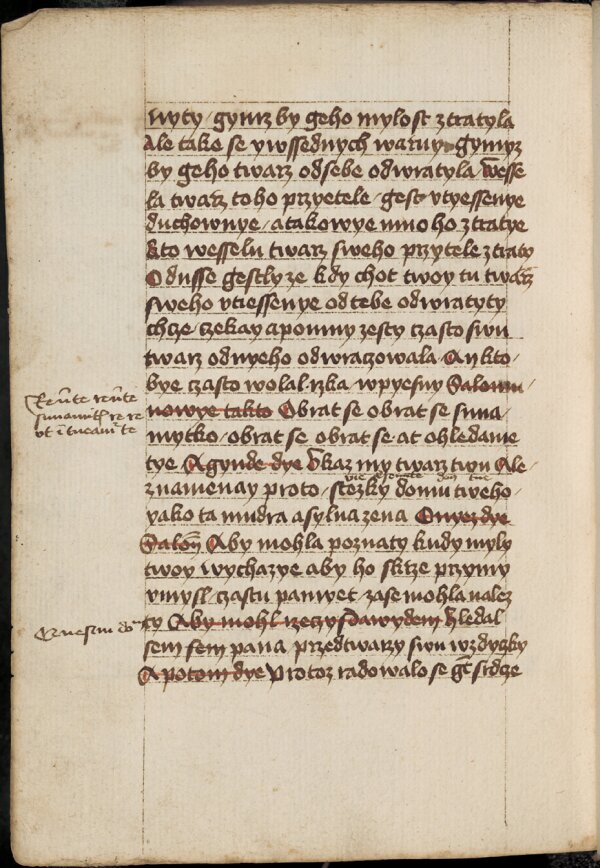 wyty / gymz by geho mylost ztratyla
Ale tako se ywssednych waruy gymyz
by geho twarz odsebe odwratyla / wesse
la twarz toho przyetele / gest vtyessenye
duchownye / atakowye mnoho ztratye
kto wesselu twarz sweho przytele ztraty
O dusse gestlyze kdy chot twoy tu twarz
sweho vtiessenye odtebe odwratyty
chcze czekay apomny zesty czasto swu
twarz odnyeho odwraczowala Ankto /
bye czasto wolal rzka / wpyesny Salomu /
Reūte reūte
sunamith re re
vt ī tueam{ur} te
nowye takto Obrat se obrat se suna
mytko / obrat se obrat se at ohledame
tye A gynde dye Vkaz my twarz twu Ale /
znamenay proto / stezky domu tweho /
yako ta mudra asylna zena
Salom Aby mohla poznaty kudy myly
twoy wychazye aby ho skrze przymy
vmysl / czastu pamyet / zase mohla nalez
ty Aby mohl rzeczy sdawydem Hledal
sem sem pana przedtwarzy swu wzdyczky
A potom dye Protoz radowalo se gt srdcze